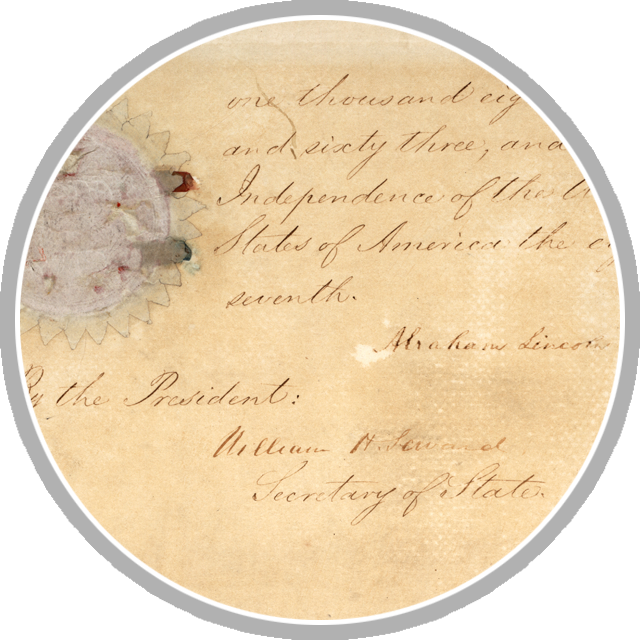 one thousand eig
and sixty three, and
Independence of the U
States of America the eig
seventh.
Abraham Lincoln
By the President:
William H. Seward
Secretary of State.